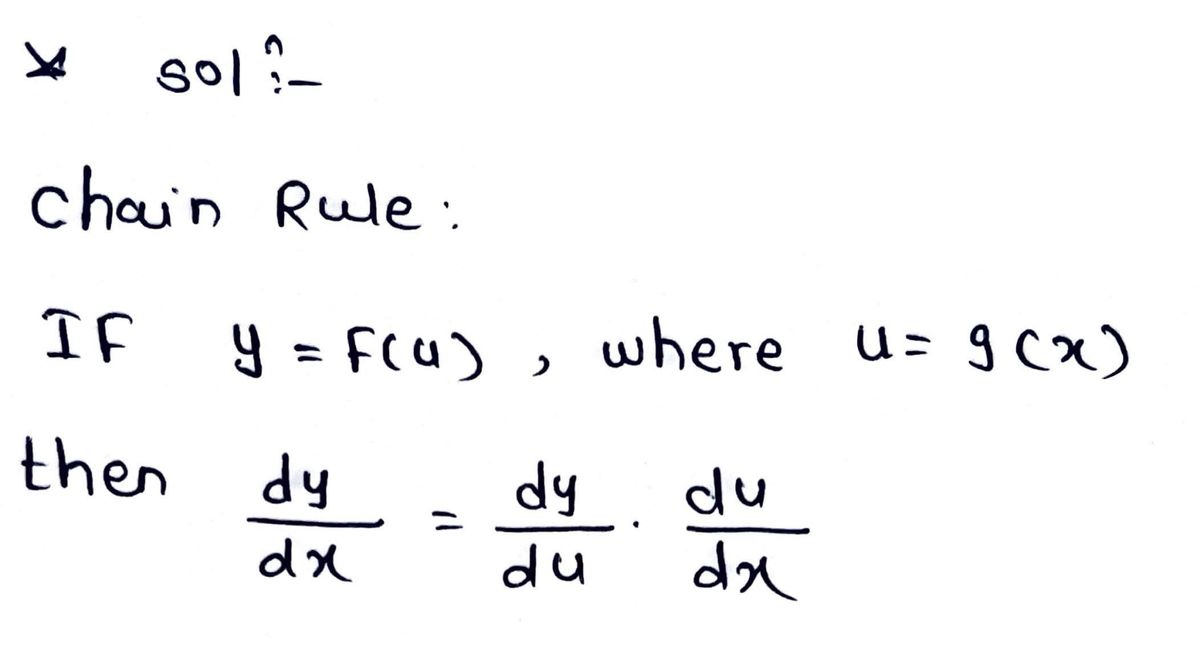 * solⁿ:-
Chain Rule:
IF y = F(u), where u = g(x)
then dy/dx = dy/du · du/dx